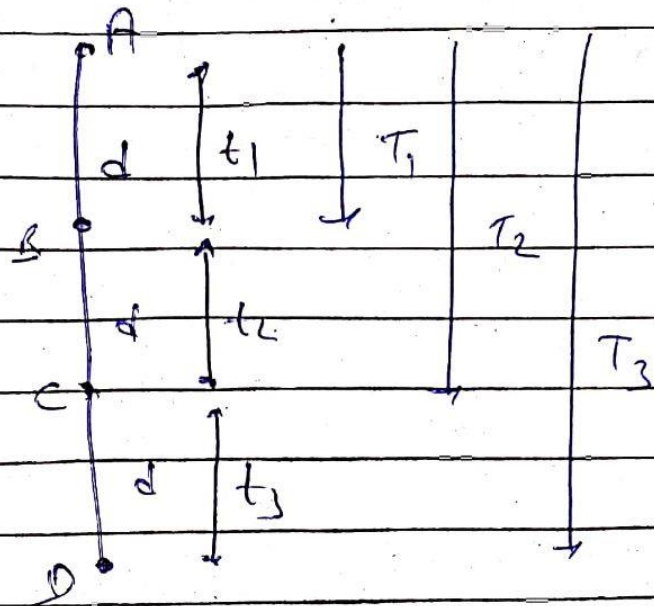 A
d t1 T1
B
T2
d t2
C
T3
d t3
D